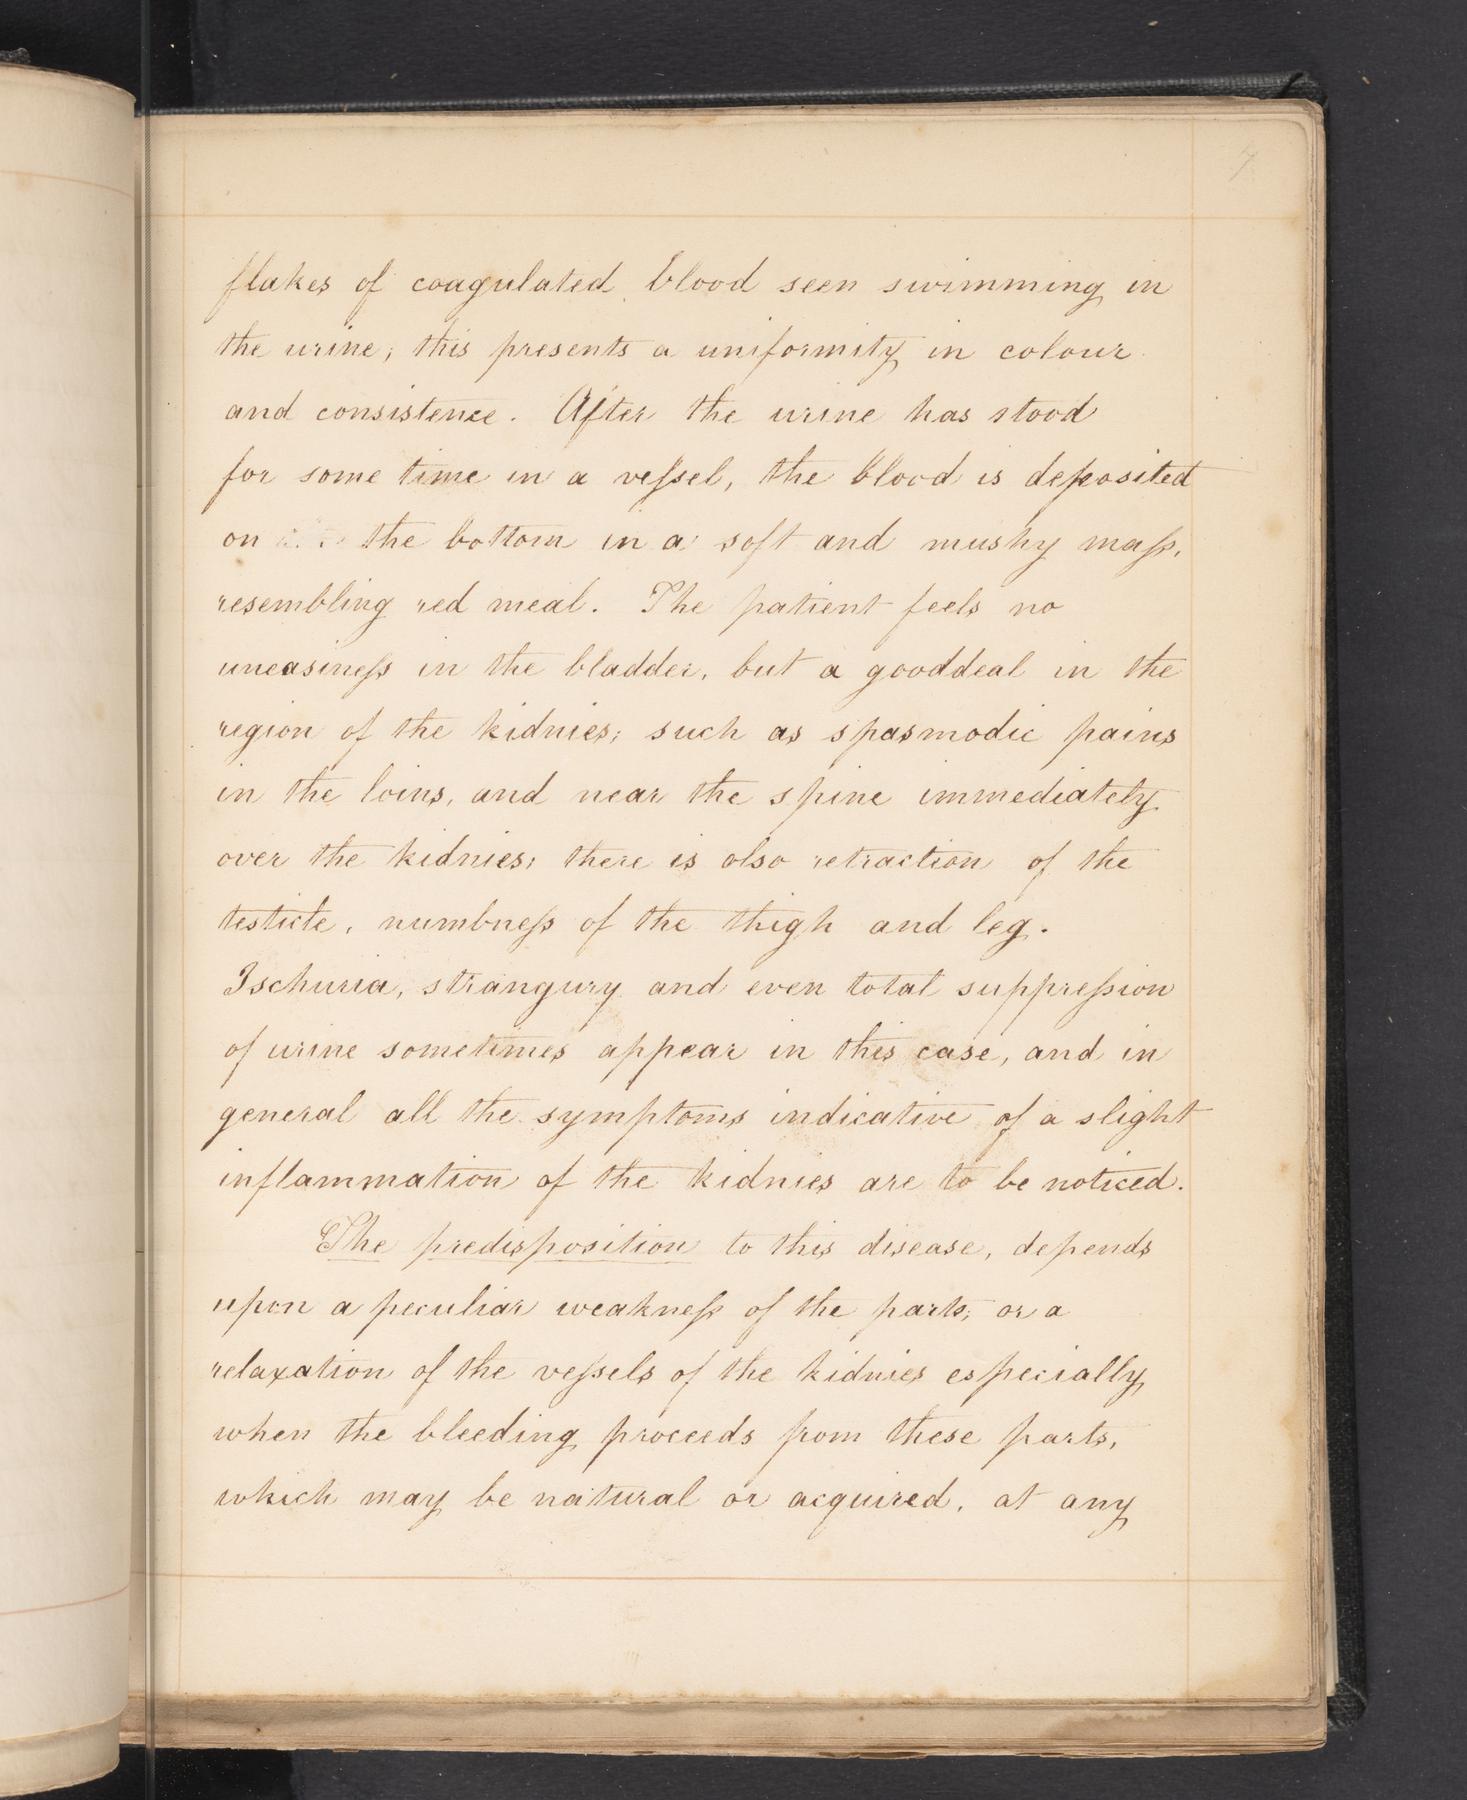 7
flakes of coagulated blood seen swimming in
the urine; this presents a uniformity in colour
and consistence. After the urine has stood
for some time in a veſsel, the blood is deposited
on the bottom in a soft and mushy maſs,
resembling red meal. The patient feels no
uneasineſs in the bladder, but a gooddeal in the
region of the kidnies; such as spasmodic pains
in the loins, and near the spine immediately
over the kidnies; there is also retraction of the
testicle, numbneſs of the thigh and leg.
Ischuria, strangury and even total suppreſsion
of urine sometimes appear in this case, and in
general all the symptoms indicative of a slight
inflammation of the kidnies are to be noticed.
The predisposition to this disease, depends
upon a peculiar weakneſs of the parts; or a
relaxation of the veſsels of the kidnies especially
when the bleeding proceeds from these parts,
which may be natural or acquired, at any